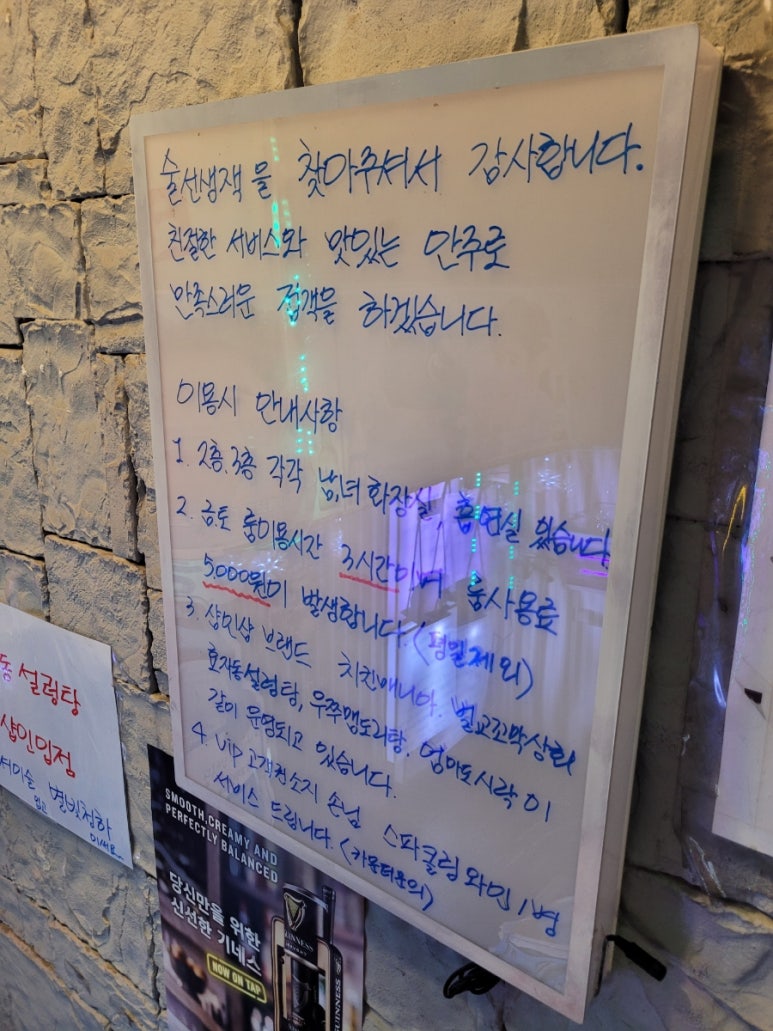 술선생잭을 찾아주셔서 감사합니다.
친절한 서비스와 맛있는 안주로
만족스러운 접객을 하겠습니다.
이용시 안내사항
1. 2층.3층 각각 남,녀 화장실, 흡연실 있습니다
2. 금토 룸이용시간 3시간이며 룸사용료
5,000원이 발생합니다. (평일제외)
3. 샵인샵 브랜드 치킨매니아. 벌교꼬막상회
효자동설렁탕, 우쭈맵도리탕. 엄마도시락이
같이 운영되고 있습니다.
4. Vip 고객권소지 손님 스파클링 와인 1병
서비스 드립니다. (카운터문의)
설렁탕
샵인입점
별빛청하
SMOOTH, CREAMY AND
PERFECTLY BALANCED
당신만을 위한
신선한 기네스
NOW ON TAP
GUINNESS
GUINNESS